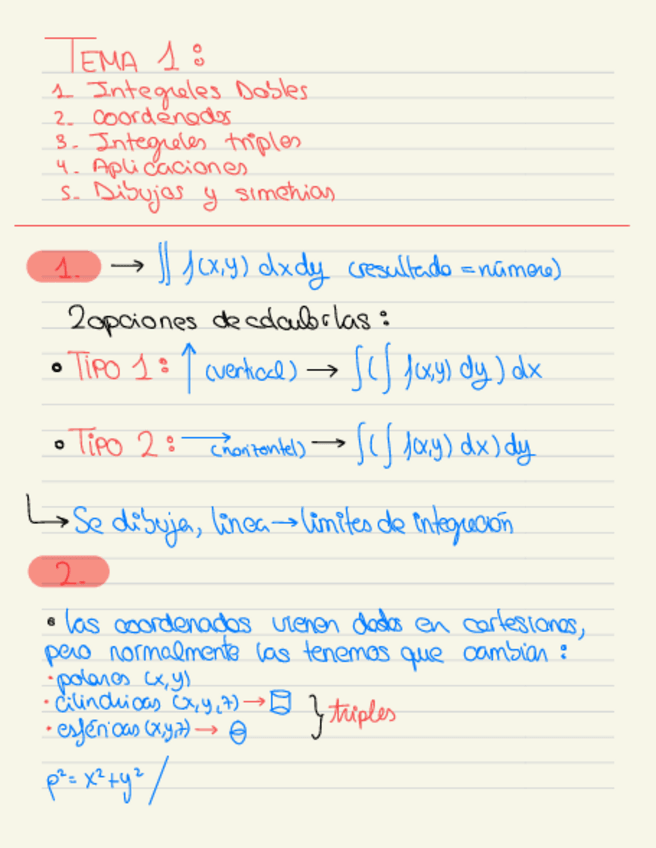 TEMA 1:
1. Integrales Dobles
2. Coordenadas
3. Integrales triples
4. Aplicaciones
5. Dibujos y simetrias
1. → ∬ f(x,y) dxdy (resultado = número)
2 opciones de calcularlas:
• TIPO 1: ↑ (vertical) → ∫(∫ f(x,y) dy) dx
• TIPO 2: → (horizontal) → ∫(∫ f(x,y) dx) dy
↳ Se dibuja, linea → limites de integración
2.
• las coordenadas vienen dadas en cartesianas,
pero normalmente las tenemos que cambiar:
• polares (x,y)
• cilindricas (x,y,z) →
• esféricas (x,y,z) → } triples
ρ² = x² + y² /